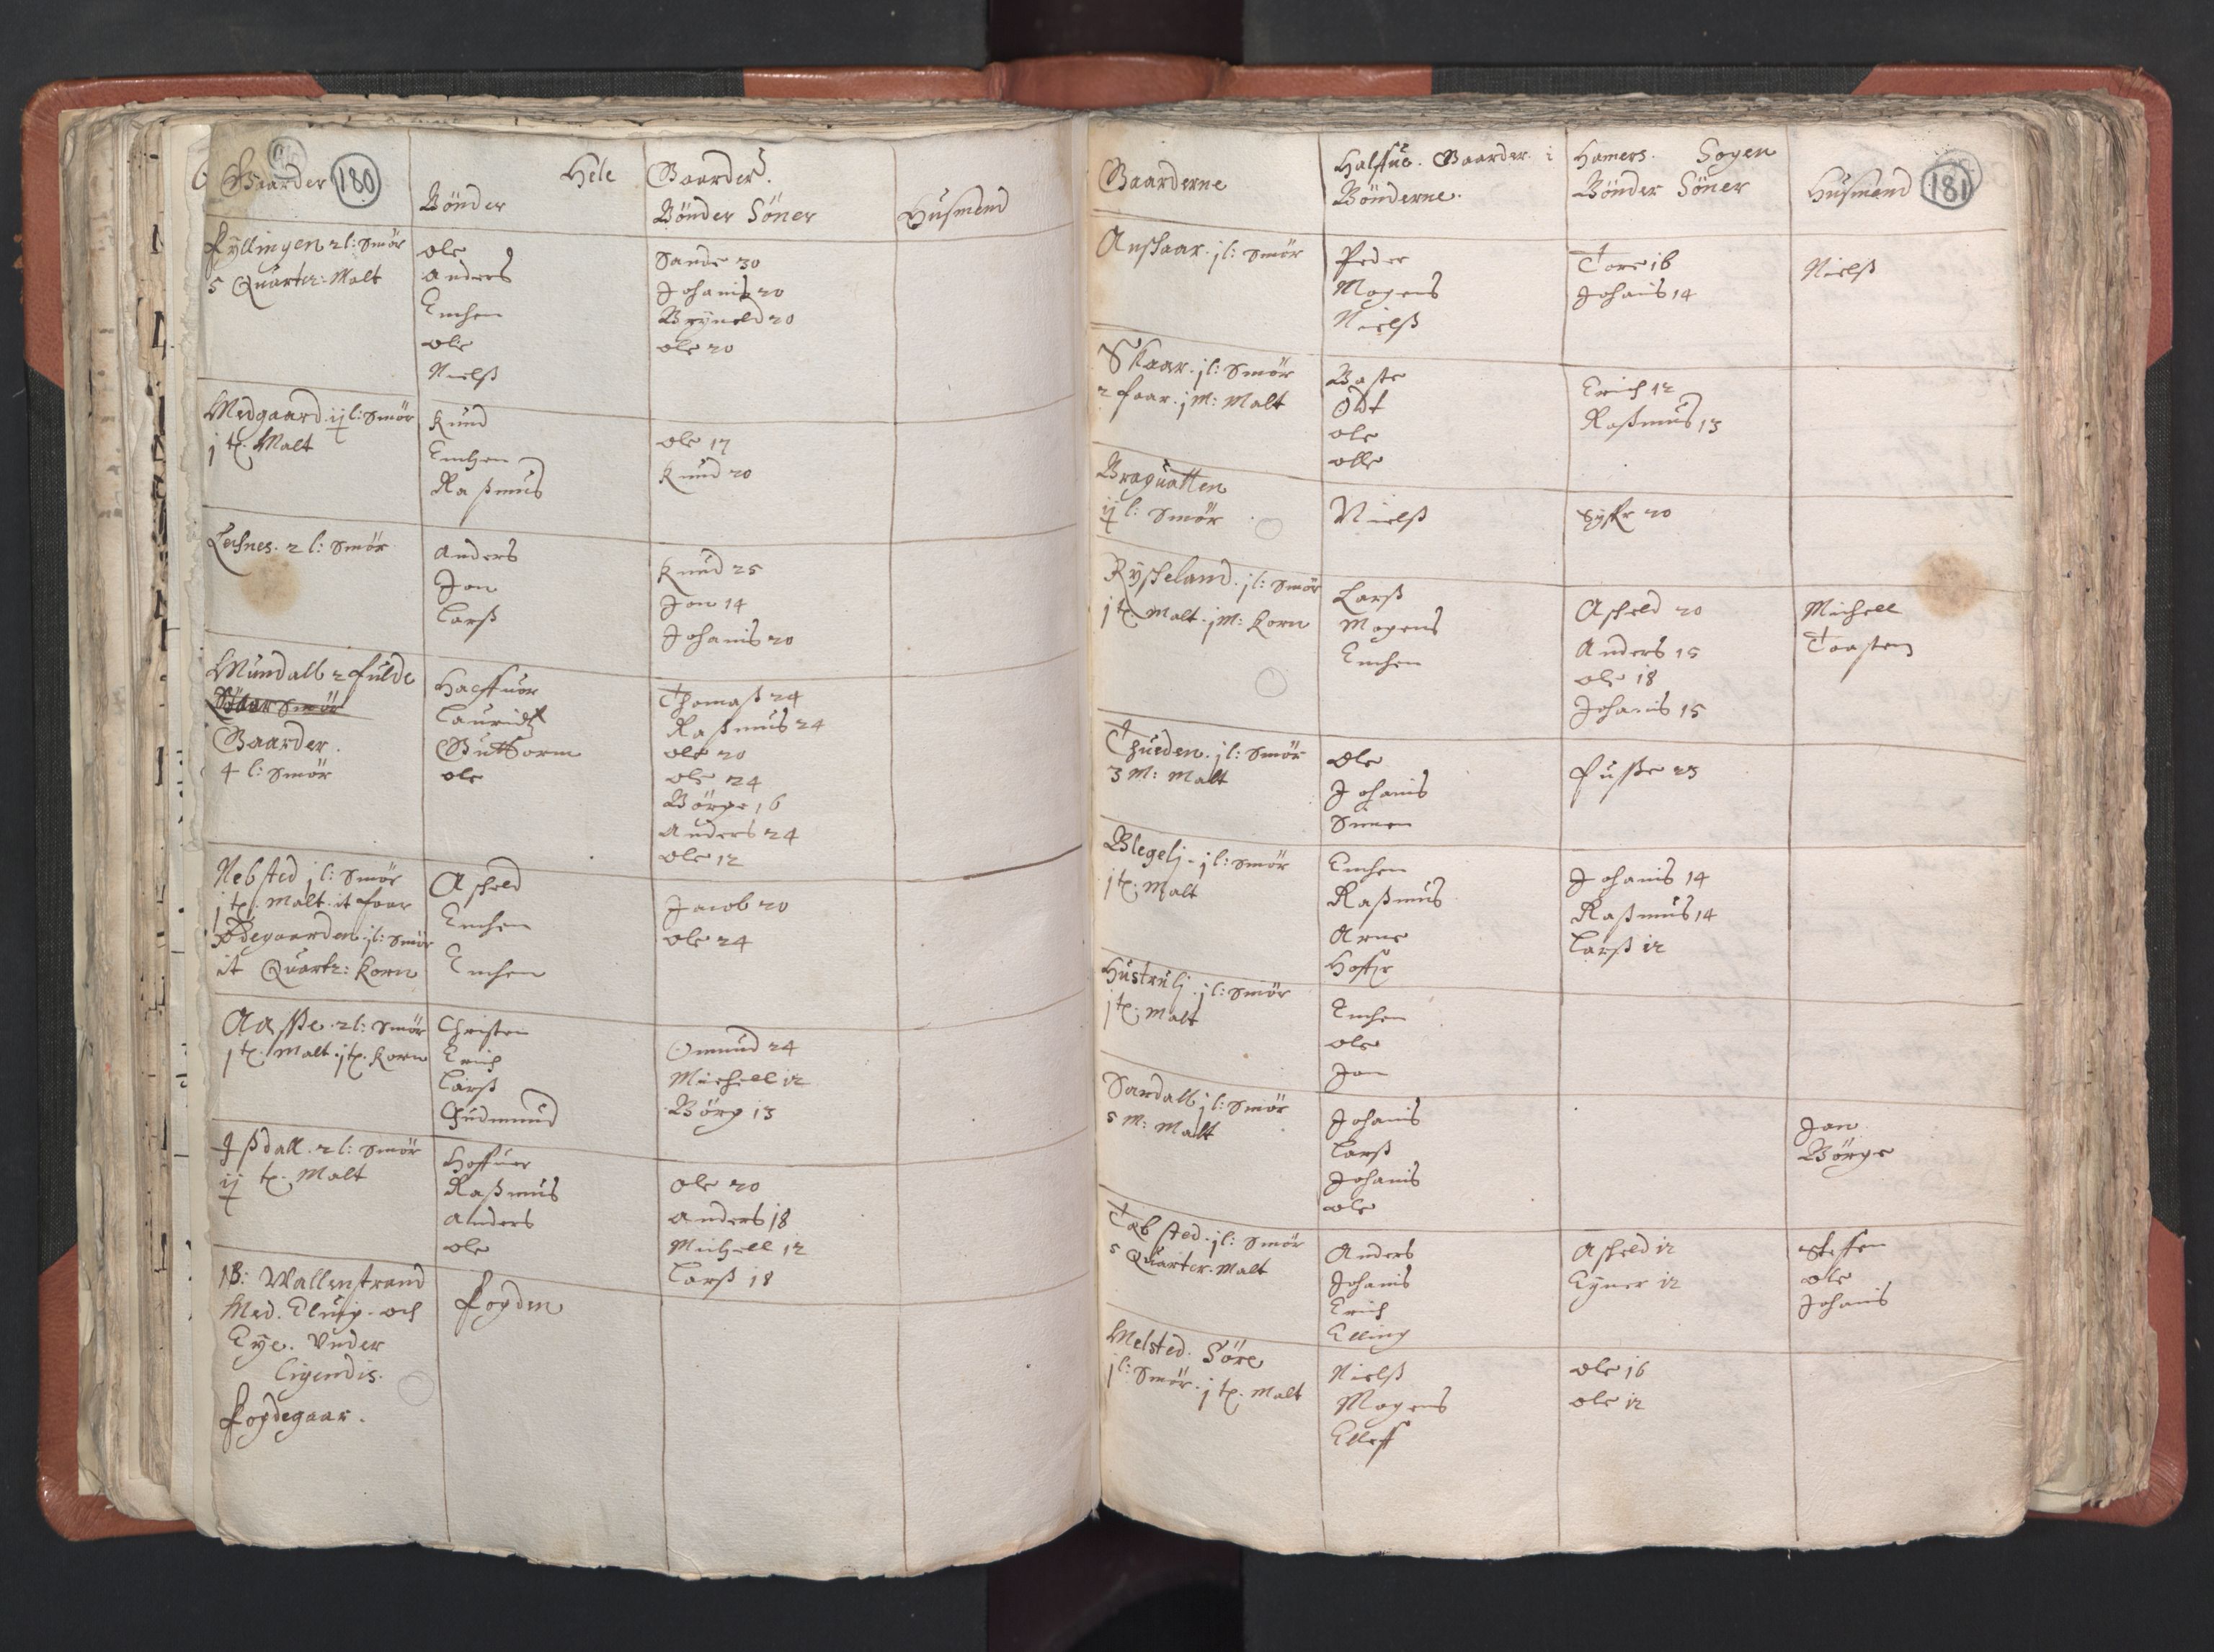 180
Hele Gaarder
Gaarder Bönder Bönder Söner Husmend
Fyllingen 2 l: Smör
5 Quarter: Malt
ole
Anders
Enchen
ole
Nielß
Sande 30
Johanis 20
Bryneld 20
ole 20
Medgaard ij l: Smör
j tp. Malt
Knud
Enchen
Raßmus
ole 17
Knud 20
Lechnes. 2 l: Smör
Anders
Jon
Larß
Knud 25
Jon 14
Johanis 20
Mundall 2 fulde
Gaarder.
4 l: Smör
Haffuor
Lauridtz
Guttorm
ole
Thomaß 24
Raßmus 24
ole 20
ole 24
Börge 16
Anders 24
ole 12
Nebsted j l: Smör
j tp. Malt it faar
Ödegaarden j l: Smör
it Quartr: Korn
Askeld
Enchen
Enchen
Jacob 20
ole 24
Aasße 2 l: Smör
j tp. Malt j tp. Korn
Christen
Erich
Larß
Gudmund
Omund 24
Michell 12
Börg 13
Jßdall. 2 l: Smör
ij tp. Malt
Hoffuer
Raßmus
Anders
ole
ole 20
Anders 18
Michell 12
Larß 18
NB: Wallenstrand
Med. Elfuig. och
Eye. Vnder
ligendis.
Fogdegaar.
Fogden
181
Halffue. Gaarder i Hamers. Sogen
Gaarderne Bönderne. Bönder Söner Husmend
Anskaar. j l: Smör
Peder
Mogens
Nielß
Tore 16
Johanis 14
Nielß
Skaar. j l: Smör
2 faar. j M: Malt
Baste
Odt
ole
olle
Erich 12
Raßmus 13
Braquatten
ij l: Smör
Nielß
Syffr 20
Rysseland. j l: Smör
j tp. Malt. j M: Korn
Larß
Mogens
Enchen
Askeld 20
Anders 15
ole 18
Johanis 15
Michell
Torsten
Thueden. j l: Smör
3 M: Malt
Ole
Johanis
Simen
Fusße 23
Blegelj. j l: Smör
j tp. Malt
Enchen
Raßmus
Arne
Johanis 14
Raßmus 14
Larß 12
Hustrulj. j l: Smör
j tp. Malt
Enchen
ole
Jon
Sardall j l: Smör
5 M: Malt
Johanis
Larß
Johanis
ole
Jon
Börge
Tebsted. j l: Smör
5 Quarter. Malt
Anders
Johanis
Erich
Elling
Askeld 12
Eyner 12
Steffen
ole
Johanis
Melsted. Söre
j l: Smör. j tp. Malt
Nielß
Mogens
Elleff
ole 16
ole 12